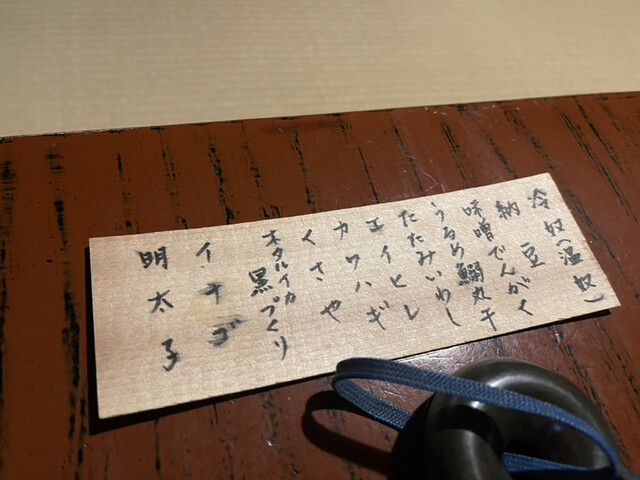 冷奴(温奴)
納豆
味噌でんがく
うるめ鰯丸干
たたみいわし
エイヒレ
カワハギ
くさや
ホタルイカ黒づくり
イチゴ
明太子